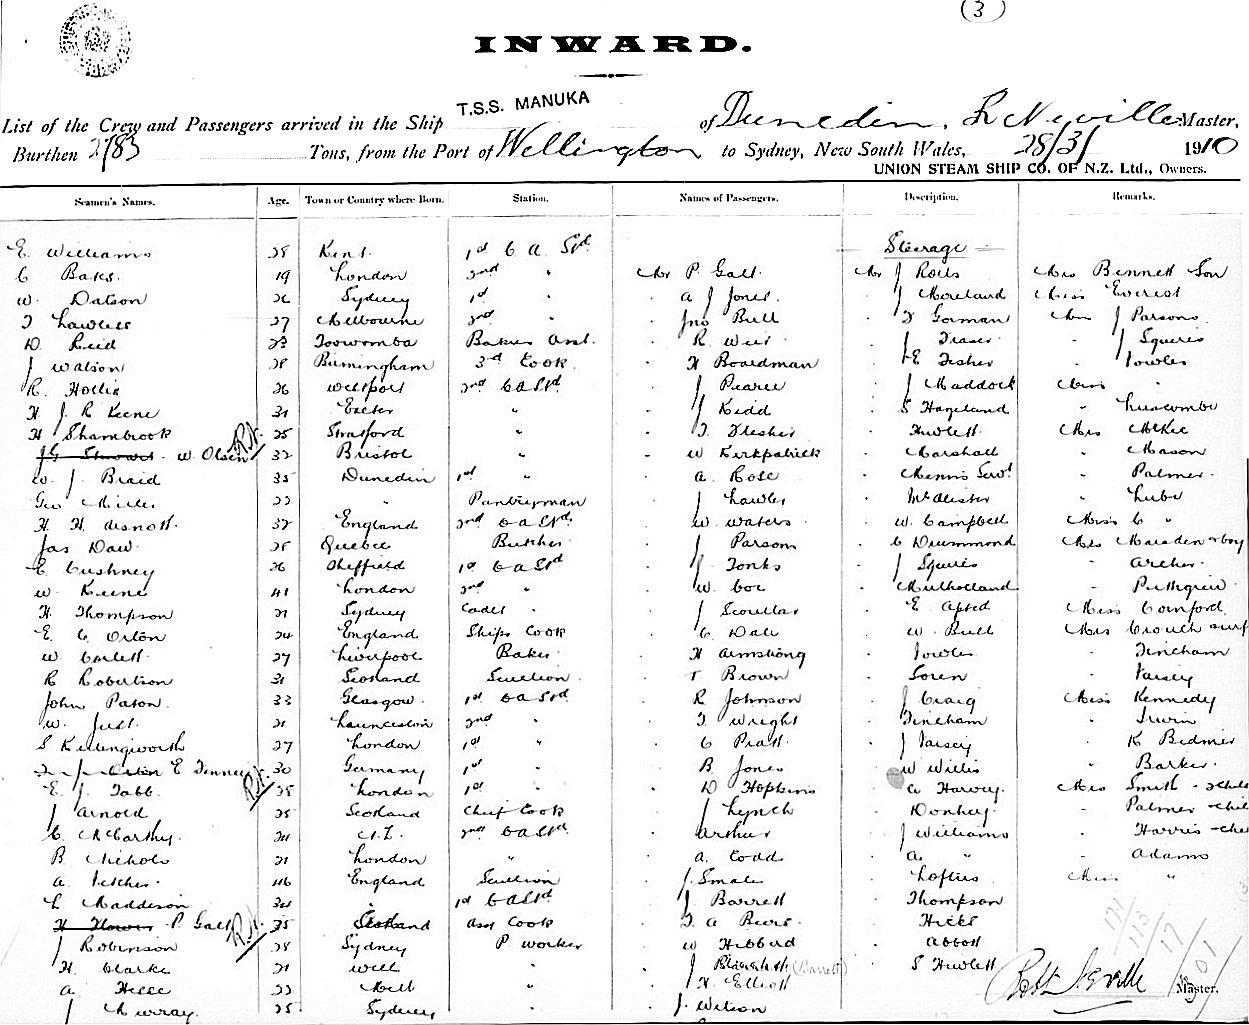 (3)
INWARD.
T.S.S. MANUKA
List of the Crew and Passengers arrived in the Ship of Dunedin, Neville Master,
Burthen 2783 Tons, from the Port of Wellington to Sydney, New South Wales, 28/3/ 1910
UNION STEAM SHIP CO. OF N.Z. Ltd., Owners.
Seamen's Names. Age. Town or Country where Born. Station. Names of Passengers. Description. Remarks.
E. Williams 28 Kent 1st C A Std Steerage
C Baks. 19 London 2nd " Mr P Galt Mr J Rolls Mrs Bennett Son
W. Datson 26 Sydney 1st " " A J Jones " J Moreland Miss Everest
T Lawless 27 Melbourne 2nd " " Jno Bull " T Gorman Mr J Parsons
D Reid 23 Toowomba Bakers Asst. " R Weir " J Fraser " J Squires
J Watson 28 Birmingham 3rd Cook " H Boardman " E Fisher " Vowles
R. Hollis 26 Westport 2nd C A Std " J Pearce " J Maddock Miss "
H J. R Keene 31 Exeter " " J Kidd " S Hageland " Luscombe
H Shambrook 25 Stratford " " T Slesher " Hewlett Mrs McKee
W Olsen 32 Bristol " " W Kirkpatrick " Marshall " Mason
W. J. Braid 35 Dunedin 1st " " A Rose " Palmer
Geo Miller 22 " Pantryman " J Lawler " McAlister " Lube
H H 32 England 2nd C A Std " W. Waters " W. Campbell Miss C "
Jas Daw 28 Quebec Butcher " J Parsons " C Drummond Mrs Marsden & boy
E Cushney 26 Sheffield 1st C A Std " J. Tonks " J Squires " Archer
W. Keene 41 London 2nd " " W. Coe " Mulholland " Pettigrew
H. Thompson 21 Sydney Cadet " " J Scoullar " E Apted Miss Cornford
E. C. Orton 24 England Ships Cook " C Dale " W. Bull Mrs Crouch
W. Corlett 27 Liverpool Baker " H Armstrong " Vowles " Fincham
R Robertson 31 Scotland Scullion " T Brown " Soren " Vaisey
John Paton. 33 Glasgow. 1st C A Std " R Johnson " J Craig Miss Kennedy
W. Just. 21 Launceston 2nd " " T Wright " Fincham " Irwin
S Killingworth 27 London 1st " " C Pratt " J Vaisey " K Bedmer
E Finney 30 Germany 1st " " B Jones " W Willis " Barker
E. J. Tabb 28 London 1st " " D Hopkins " A Harvey Mrs Smith
J Arnold 25 Scotland Chief Cook " J Lynch " Donhey " Palmer
C McCarthy 24 N.Z. 2nd C A Std " Arthur " J Williams " Harris
B Nichols 21 London " " A. Todd " A. " " Adams
A. Fetcher 46 England Scullion " J. Smale " Loftus Miss "
L Maddison 34 " 1st C A Std " J. Barrett " Thompson
P. Galt 35 Scotland Asst Cook " T A Beers " Hicks
J Robinson 28 Sydney P worker " W Hibberd " Abbott
H. Clarke 21 Well " " J (Barrett) " S Hewlett
A. Hill 22 Melb " " H. Elliott Master.
J Murray. 25 Sydney " " J. Wilson